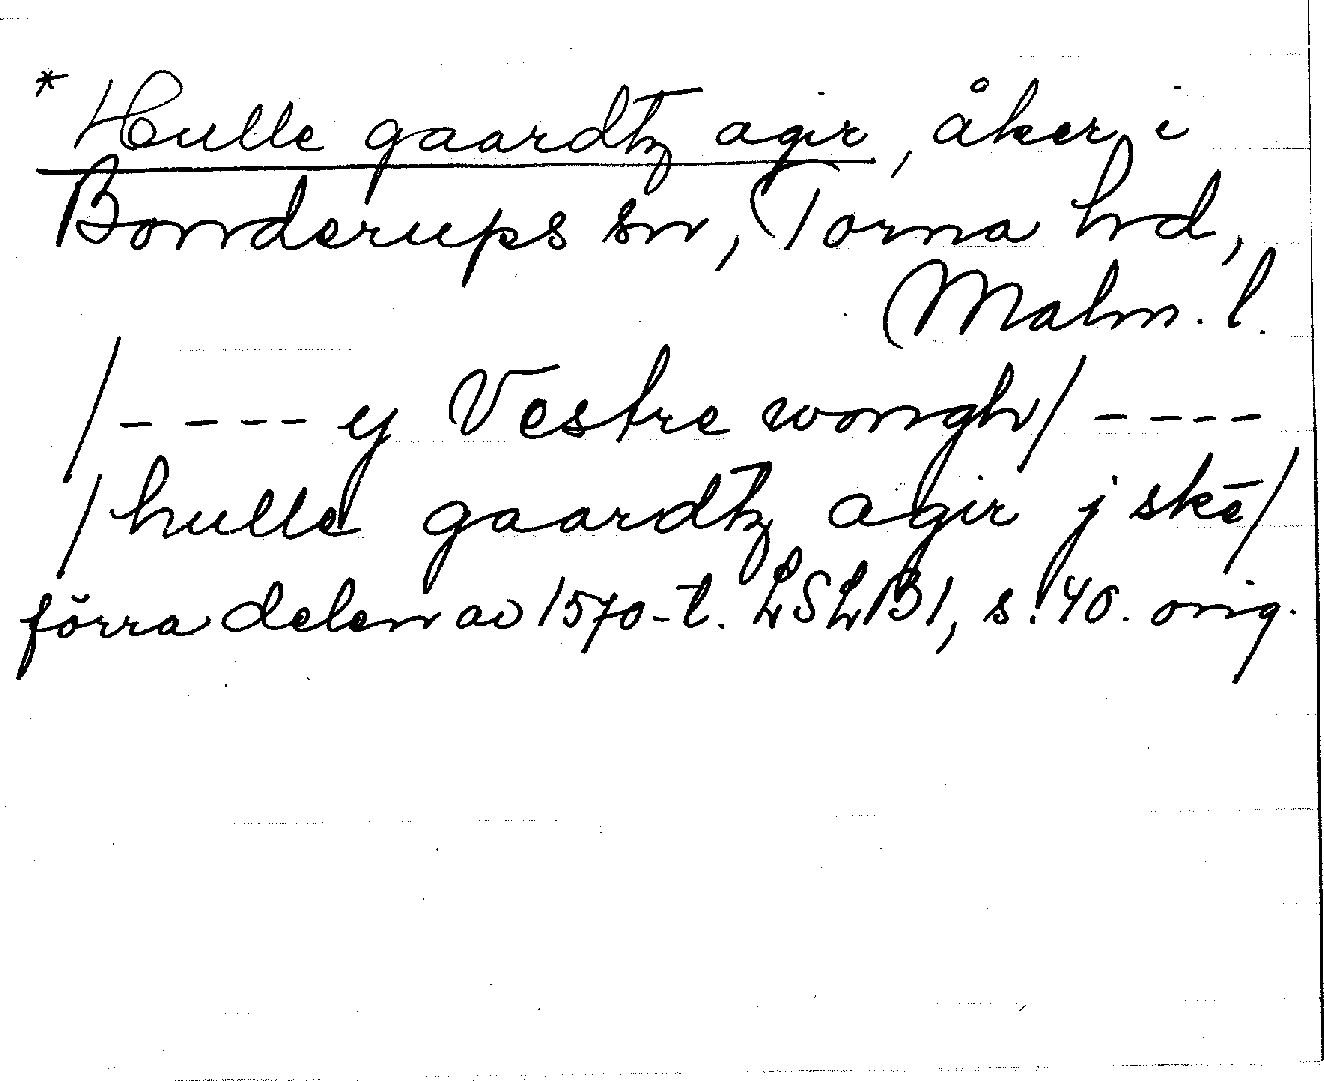 * Hulle gaardtz agir, åker i
Bonderups sn, Torna hd,
Malm. l.
/---- ej Vestre wongh/ ----
/hulle gaardtz agir j skē/
förra delen av 1570-t. LSLB1, s. 40. orig.